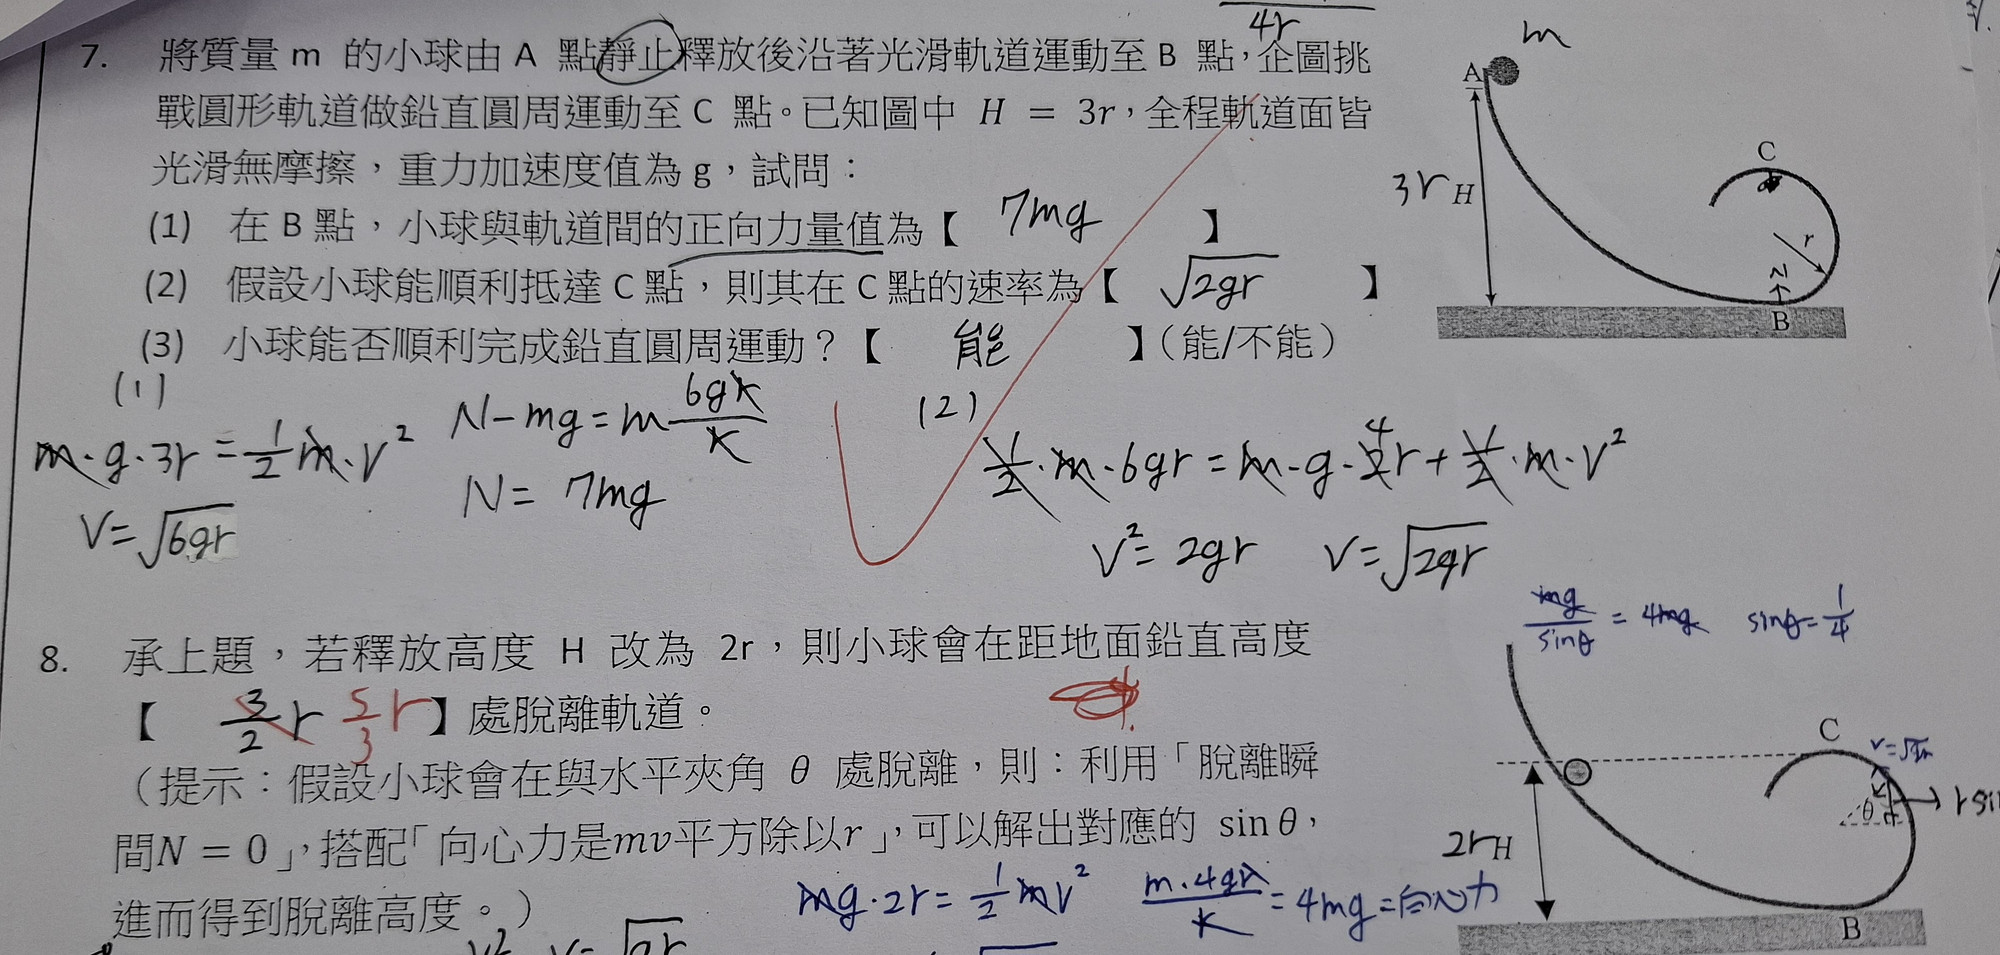 4r
7. 將質量 m 的小球由 A 點靜止釋放後沿著光滑軌道運動至 B 點,企圖挑
戰圓形軌道做鉛直圓周運動至 C 點。已知圖中 H = 3r,全程軌道面皆
光滑無摩擦,重力加速度值為 g,試問:
(1) 在 B 點,小球與軌道間的正向力量值為【 7mg 】
(2) 假設小球能順利抵達 C 點,則其在 C 點的速率為【 √2gr 】
(3) 小球能否順利完成鉛直圓周運動?【 能 】(能/不能)
m
A
3r H
C
r
N
B
(1)
m·g·3r = 1/2 m·v²
v = √6gr
N - mg = m 6gr/r
N = 7mg
(2)
1/2·m·6gr = m·g·2r + 1/2·m·v²
4
v² = 2gr v = √2gr
8. 承上題,若釋放高度 H 改為 2r,則小球會在距地面鉛直高度
【 3/2 r 5/3 r 】處脫離軌道。
(提示:假設小球會在與水平夾角 θ 處脫離,則:利用「脫離瞬
間N = 0」,搭配「向心力是mv平方除以r」,可以解出對應的 sin θ,
進而得到脫離高度。)
mg·2r = 1/2 mv² m·4gr/r = 4mg = 向心力
mg/sinθ = 4mg sinθ = 1/4
C
θ
2r H
B